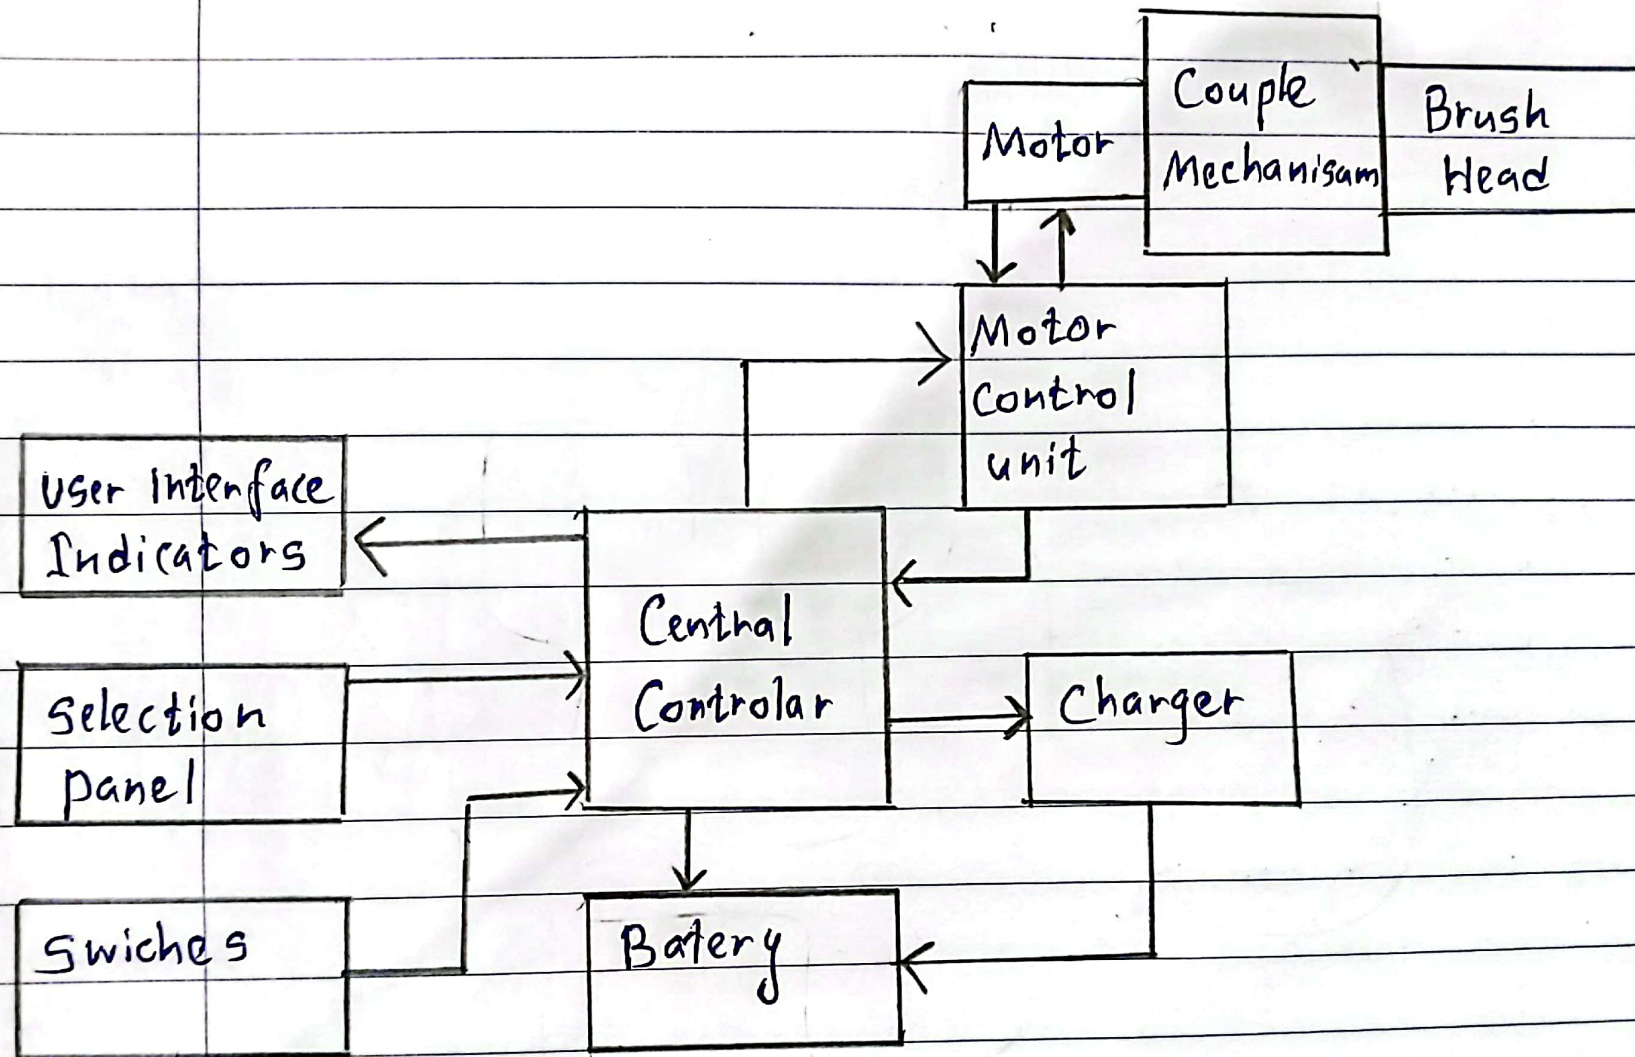 Couple
Mechanisam
Motor
Brush
Head
Motor
Control
unit
User Interface
Indicators
Central
Controlar
Selection
panel
Charger
Swiches
Batery